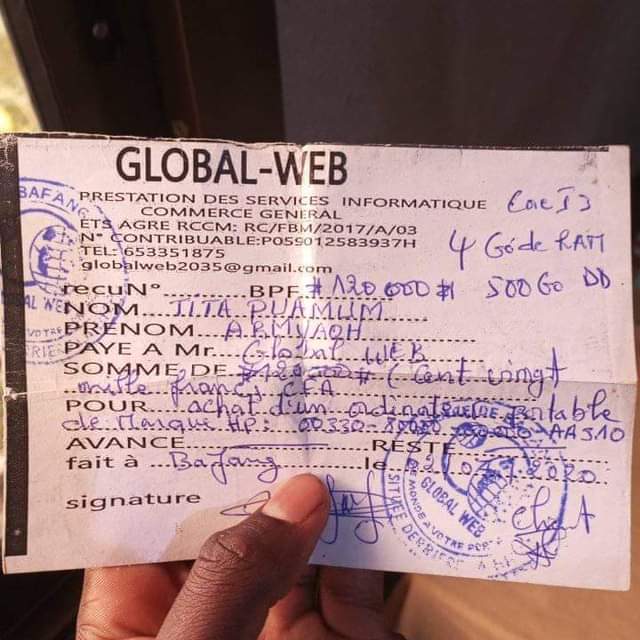 GLOBAL-WEB
PRESTATION DES SERVICES INFORMATIQUE
COMMERCE GENERAL
ETS AGRE RCCM: RC/FBM/2017/A/03
N° CONTRIBUABLE:P059012583937H
TEL: 653351875
globalweb2035@gmail.com
Core I3
4 Go de RAM
500 Go DD
recuN°............ BPF # 120 000 #
NOM... TITA PUAMLIM
PRENOM...
PAYE A Mr... Global WEB
SOMME DE # # (cent vingt
mille francs CFA
POUR... achat d'un ordinateur portable
de Marque HP: 00330- AA510
AVANCE RESTE
fait à ... Bafang le 2020
signature
BAFANG
GLOBAL WEB
GLOBAL WEB
MONDE A VOTRE
SITUEE DERRIERE